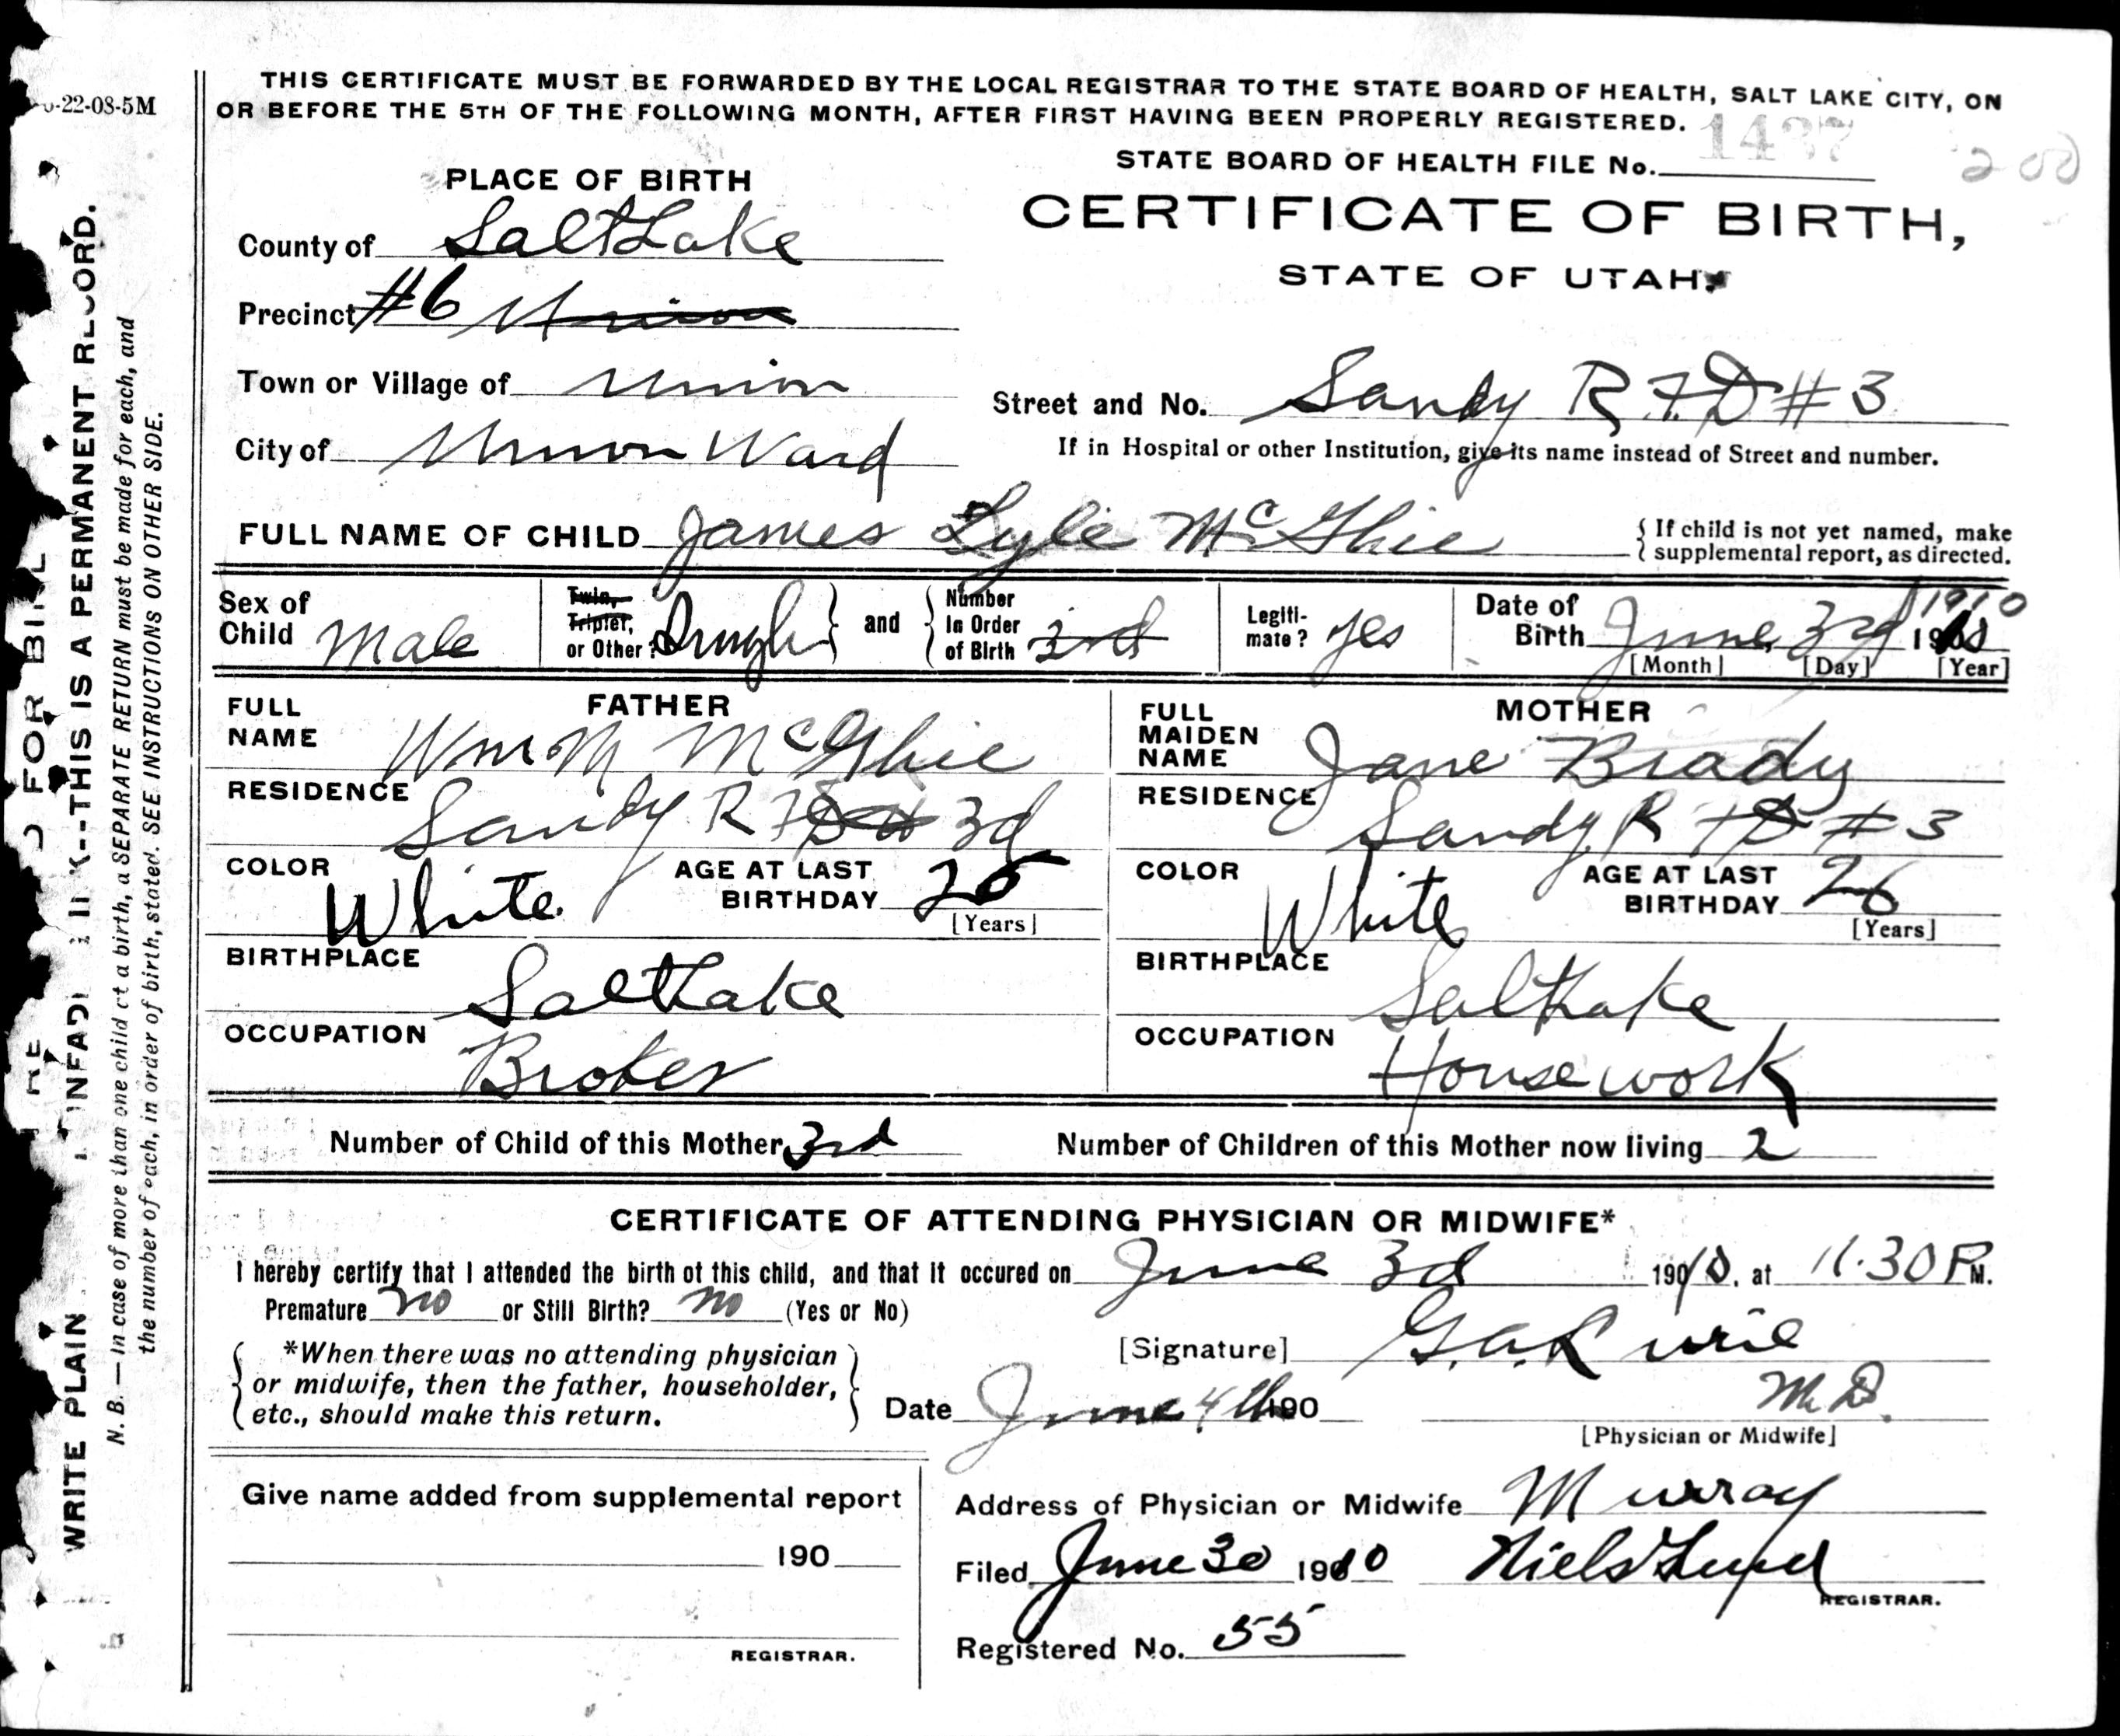 6-22-08-5M
THIS CERTIFICATE MUST BE FORWARDED BY THE LOCAL REGISTRAR TO THE STATE BOARD OF HEALTH, SALT LAKE CITY, ON
OR BEFORE THE 5TH OF THE FOLLOWING MONTH, AFTER FIRST HAVING BEEN PROPERLY REGISTERED.
STATE BOARD OF HEALTH FILE No. 1437
200
PLACE OF BIRTH
CERTIFICATE OF BIRTH,
STATE OF UTAH.
County of Salt Lake
Precinct #6 Union
Town or Village of Union
Street and No. Sandy R F D #3
City of Union Ward
If in Hospital or other Institution, give its name instead of Street and number.
FULL NAME OF CHILD James Lyle McGhie
{ If child is not yet named, make
{ supplemental report, as directed.
Sex of Child Male
Twin, Triplet, or Other? Single } and { Number In Order of Birth 3rd
Legiti-mate? Yes
Date of Birth June 3rd 1910
1910
[Month] [Day] [Year]
FATHER
FULL NAME Wm M McGhie
RESIDENCE Sandy R F D # 3d
COLOR White
AGE AT LAST BIRTHDAY 25
[Years]
BIRTHPLACE Salt Lake
OCCUPATION Broker
MOTHER
FULL MAIDEN NAME Jane Brady
RESIDENCE Sandy R F D # 3
COLOR White
AGE AT LAST BIRTHDAY 26
[Years]
BIRTHPLACE Salt Lake
OCCUPATION Housework
Number of Child of this Mother 3rd
Number of Children of this Mother now living 2
CERTIFICATE OF ATTENDING PHYSICIAN OR MIDWIFE*
I hereby certify that I attended the birth of this child, and that it occured on June 3d 1910, at 11.30 P M.
Premature no or Still Birth? no (Yes or No)
*When there was no attending physician
or midwife, then the father, householder,
etc., should make this return.
[Signature] G.A.
M.D.
Date June 4th 190
[Physician or Midwife]
Give name added from supplemental report
190
REGISTRAR.
Address of Physician or Midwife Murray
Filed June 30 1910 Niels Lund
REGISTRAR.
Registered No. 55
FOR BI
WRITE PLAIN UNFADI INK--THIS IS A PERMANENT RECORD.
N. B. — In case of more than one child at a birth, a SEPARATE RETURN must be made for each, and
the number of each, in order of birth, stated. SEE INSTRUCTIONS ON OTHER SIDE.